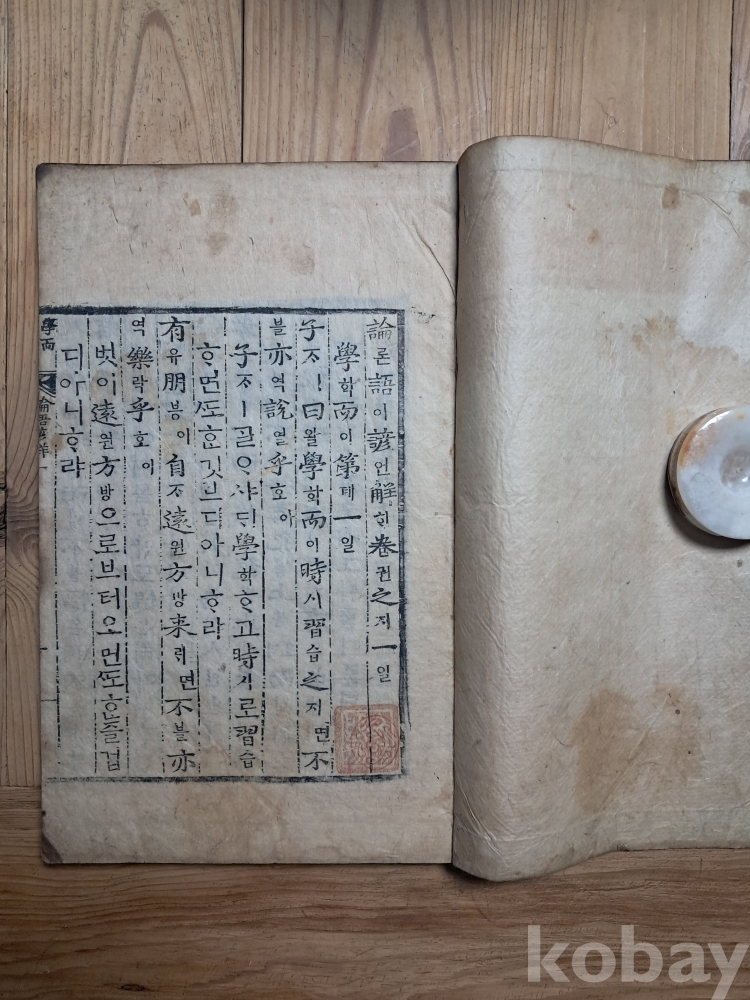 論론語어諺언解ᄒᆡ卷권之지一일
學학而이第뎨一일
子ᄌᆞㅣ曰왈學학而이時시習습之지면不
블亦역說열乎호아
子ᄌᆞㅣᄀᆞᆯᄋᆞ샤ᄃᆡ學학ᄒᆞ고時시로習습
ᄒᆞ면ᄯᅩᄒᆞᆫ깃브디아니ᄒᆞ랴
有유朋븡이自ᄌᆞ遠원方방来ᄅᆡ면不블亦
역樂락乎호아
벗이遠원方방으로브터오면ᄯᅩᄒᆞᆫ즐겁
디아니ᄒᆞ랴
學而 論語諺解 一
kobay